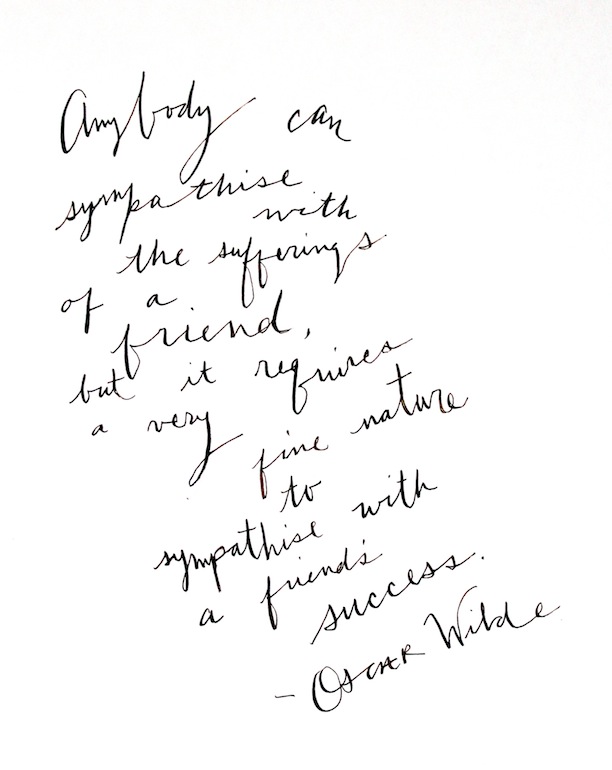 Anybody can
sympathise
with
the sufferings
of a
friend,
but it requires
a very
fine nature
to
sympathise with
a friend's
success.
- Oscar Wilde